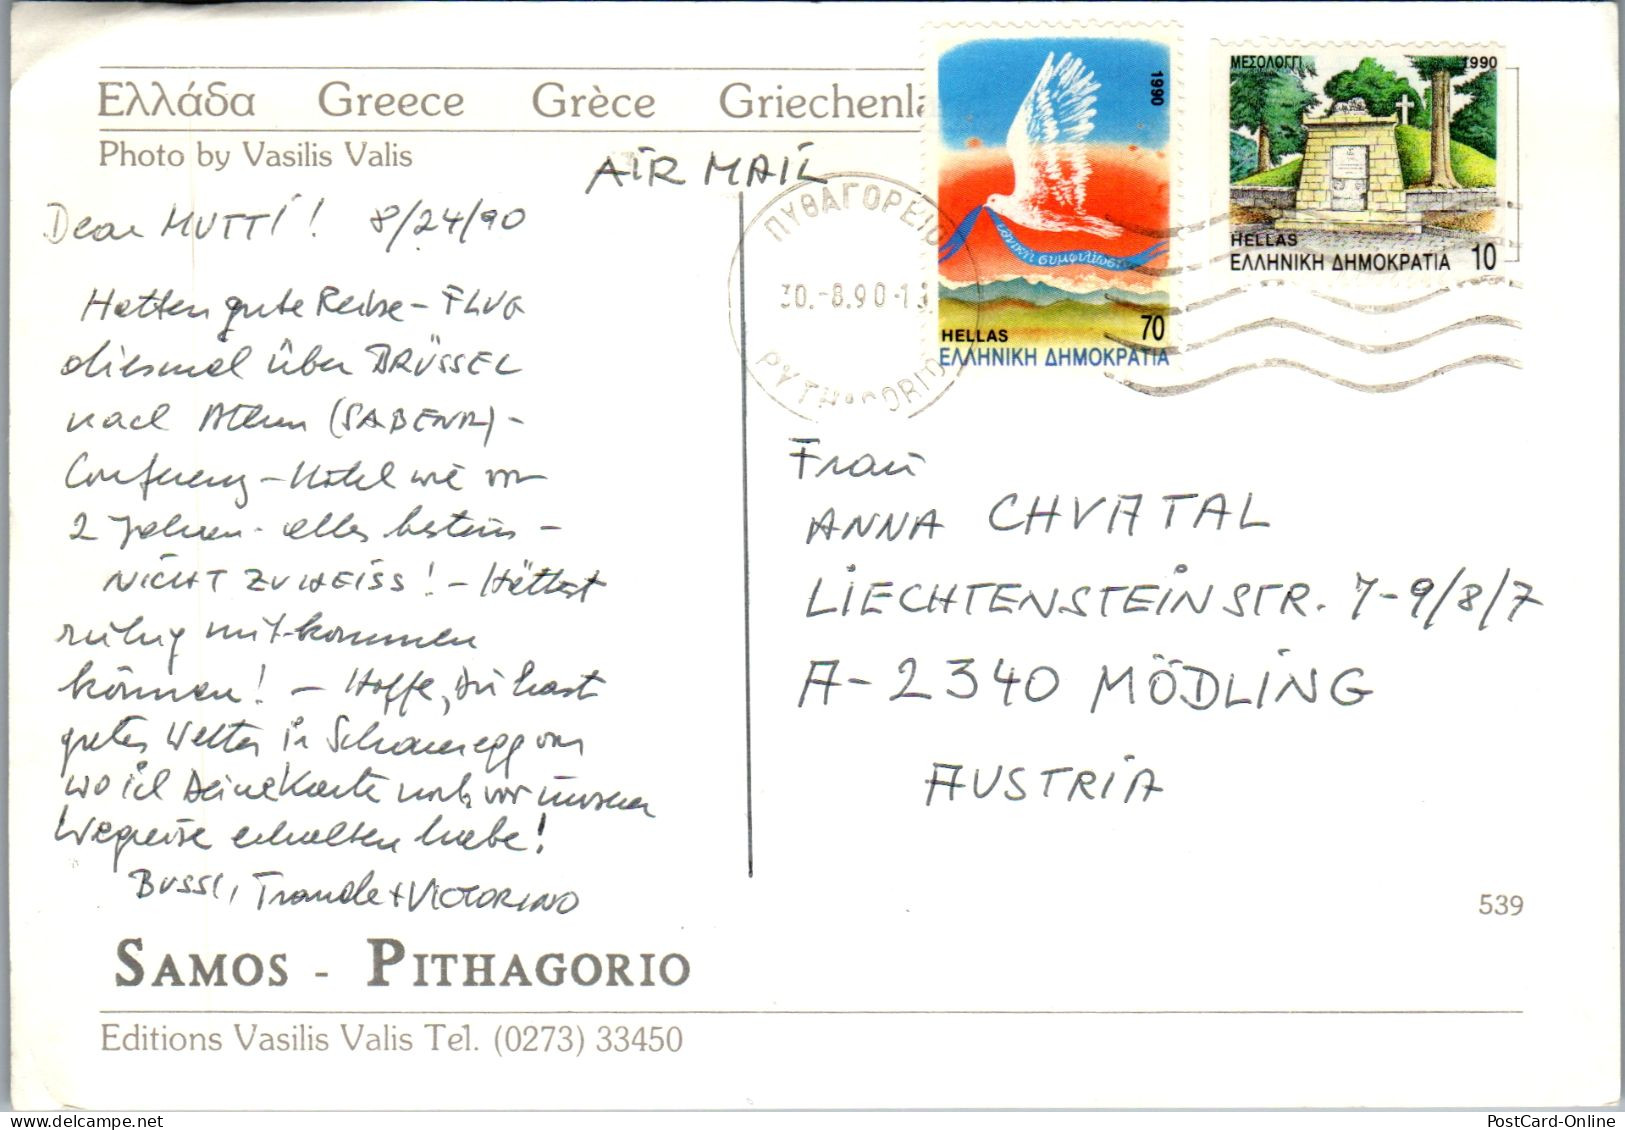 Ελλάδα Greece Grèce Griechenla
Photo by Vasilis Valis
AIR MAIL
Dear MUTTI! 8/24/90
Hatten gute Reise - FLUG
diesmal über BRÜSSEL
nach Athen (SABENA) -
Conferenz - Hotel wie vor
2 Jahren - alles bestens -
NICHT ZU HEISS! - Hättest
ruhig mit-kommen
können! - Hoffe, Du hast
gutes Wetter in
wo ich Deine Karte noch vor unserer
Wegreise erhalten habe!
BUSSI, Traude + VICTORINO
SAMOS - PITHAGORIO
Editions Vasilis Valis Tel. (0273) 33450
1990
εθνική συμφιλίωση
HELLAS 70
ΕΛΛΗΝΙΚΗ ΔΗΜΟΚΡΑΤΙΑ
ΜΕΣΟΛΟΓΓΙ 1990
HELLAS
ΕΛΛΗΝΙΚΗ ΔΗΜΟΚΡΑΤΙΑ 10
ΠΥΘΑΓΟΡΕΙΟ
30.-8.90-13
PYTHAGORIO
Frau
ANNA CHVATAL
LIECHTENSTEINSTR. 7-9/8/7
A-2340 MÖDLING
AUSTRIA
539
PostCard-Online